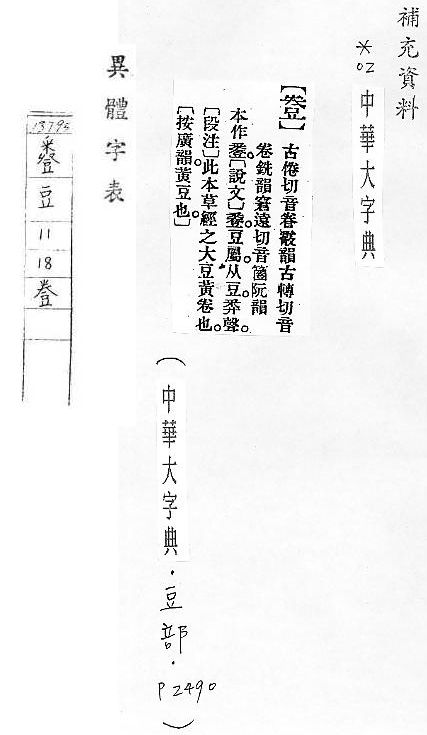 補充資料
*02 中華大字典
【𧯦】古倦切音眷霰韻古轉切音
卷銑韻窘遠切音箘阮韻
本作𧯷。[說文]𧯷豆屬从豆𢍏聲。
[段注]此本草經之大豆黃卷也。
[按廣韻黃豆也。]
(中華大字典.豆部.P2490)
異體字表
13795
豆
11
18
𧯦